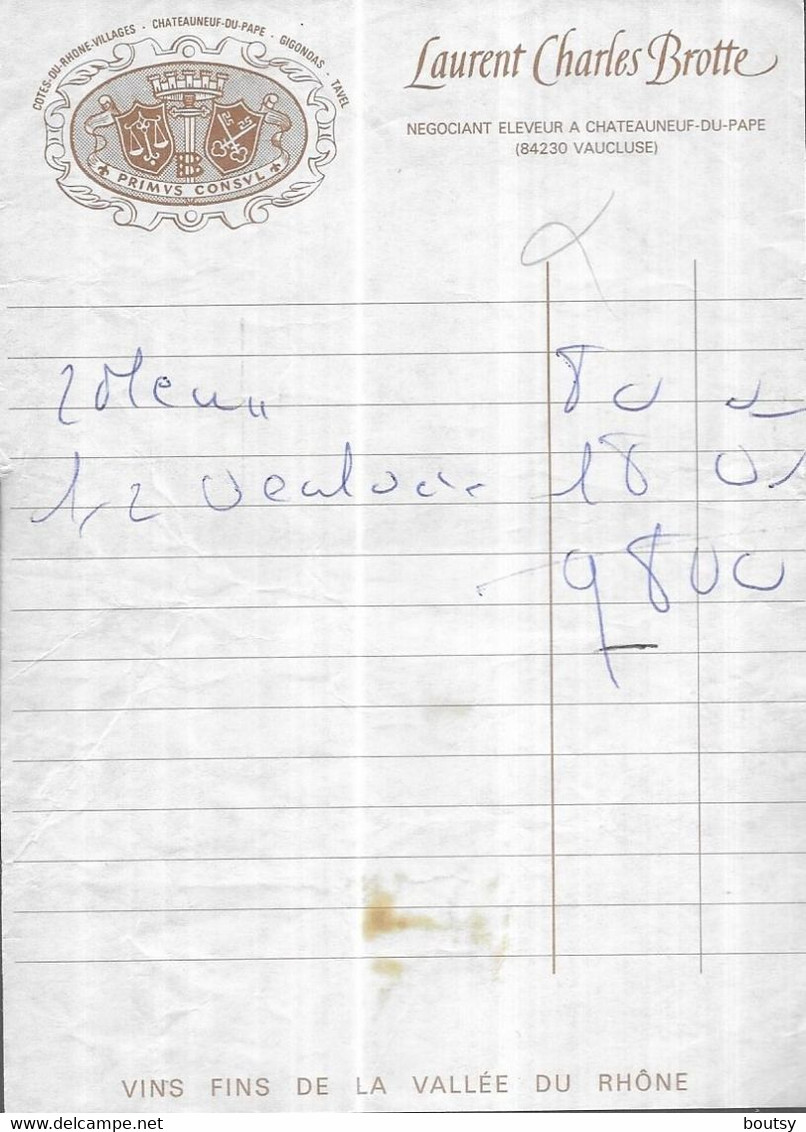 COTES-DU-RHONE-VILLAGES - CHATEAUNEUF-DU-PAPE - GIGONDAS - TAVEL
PRIMVS CONSVL
Laurent Charles Brotte
NEGOCIANT ELEVEUR A CHATEAUNEUF-DU-PAPE
(84230 VAUCLUSE)
2 Menu 80
1/2 18
98 00
VINS FINS DE LA VALLÉE DU RHÔNE
boutsy